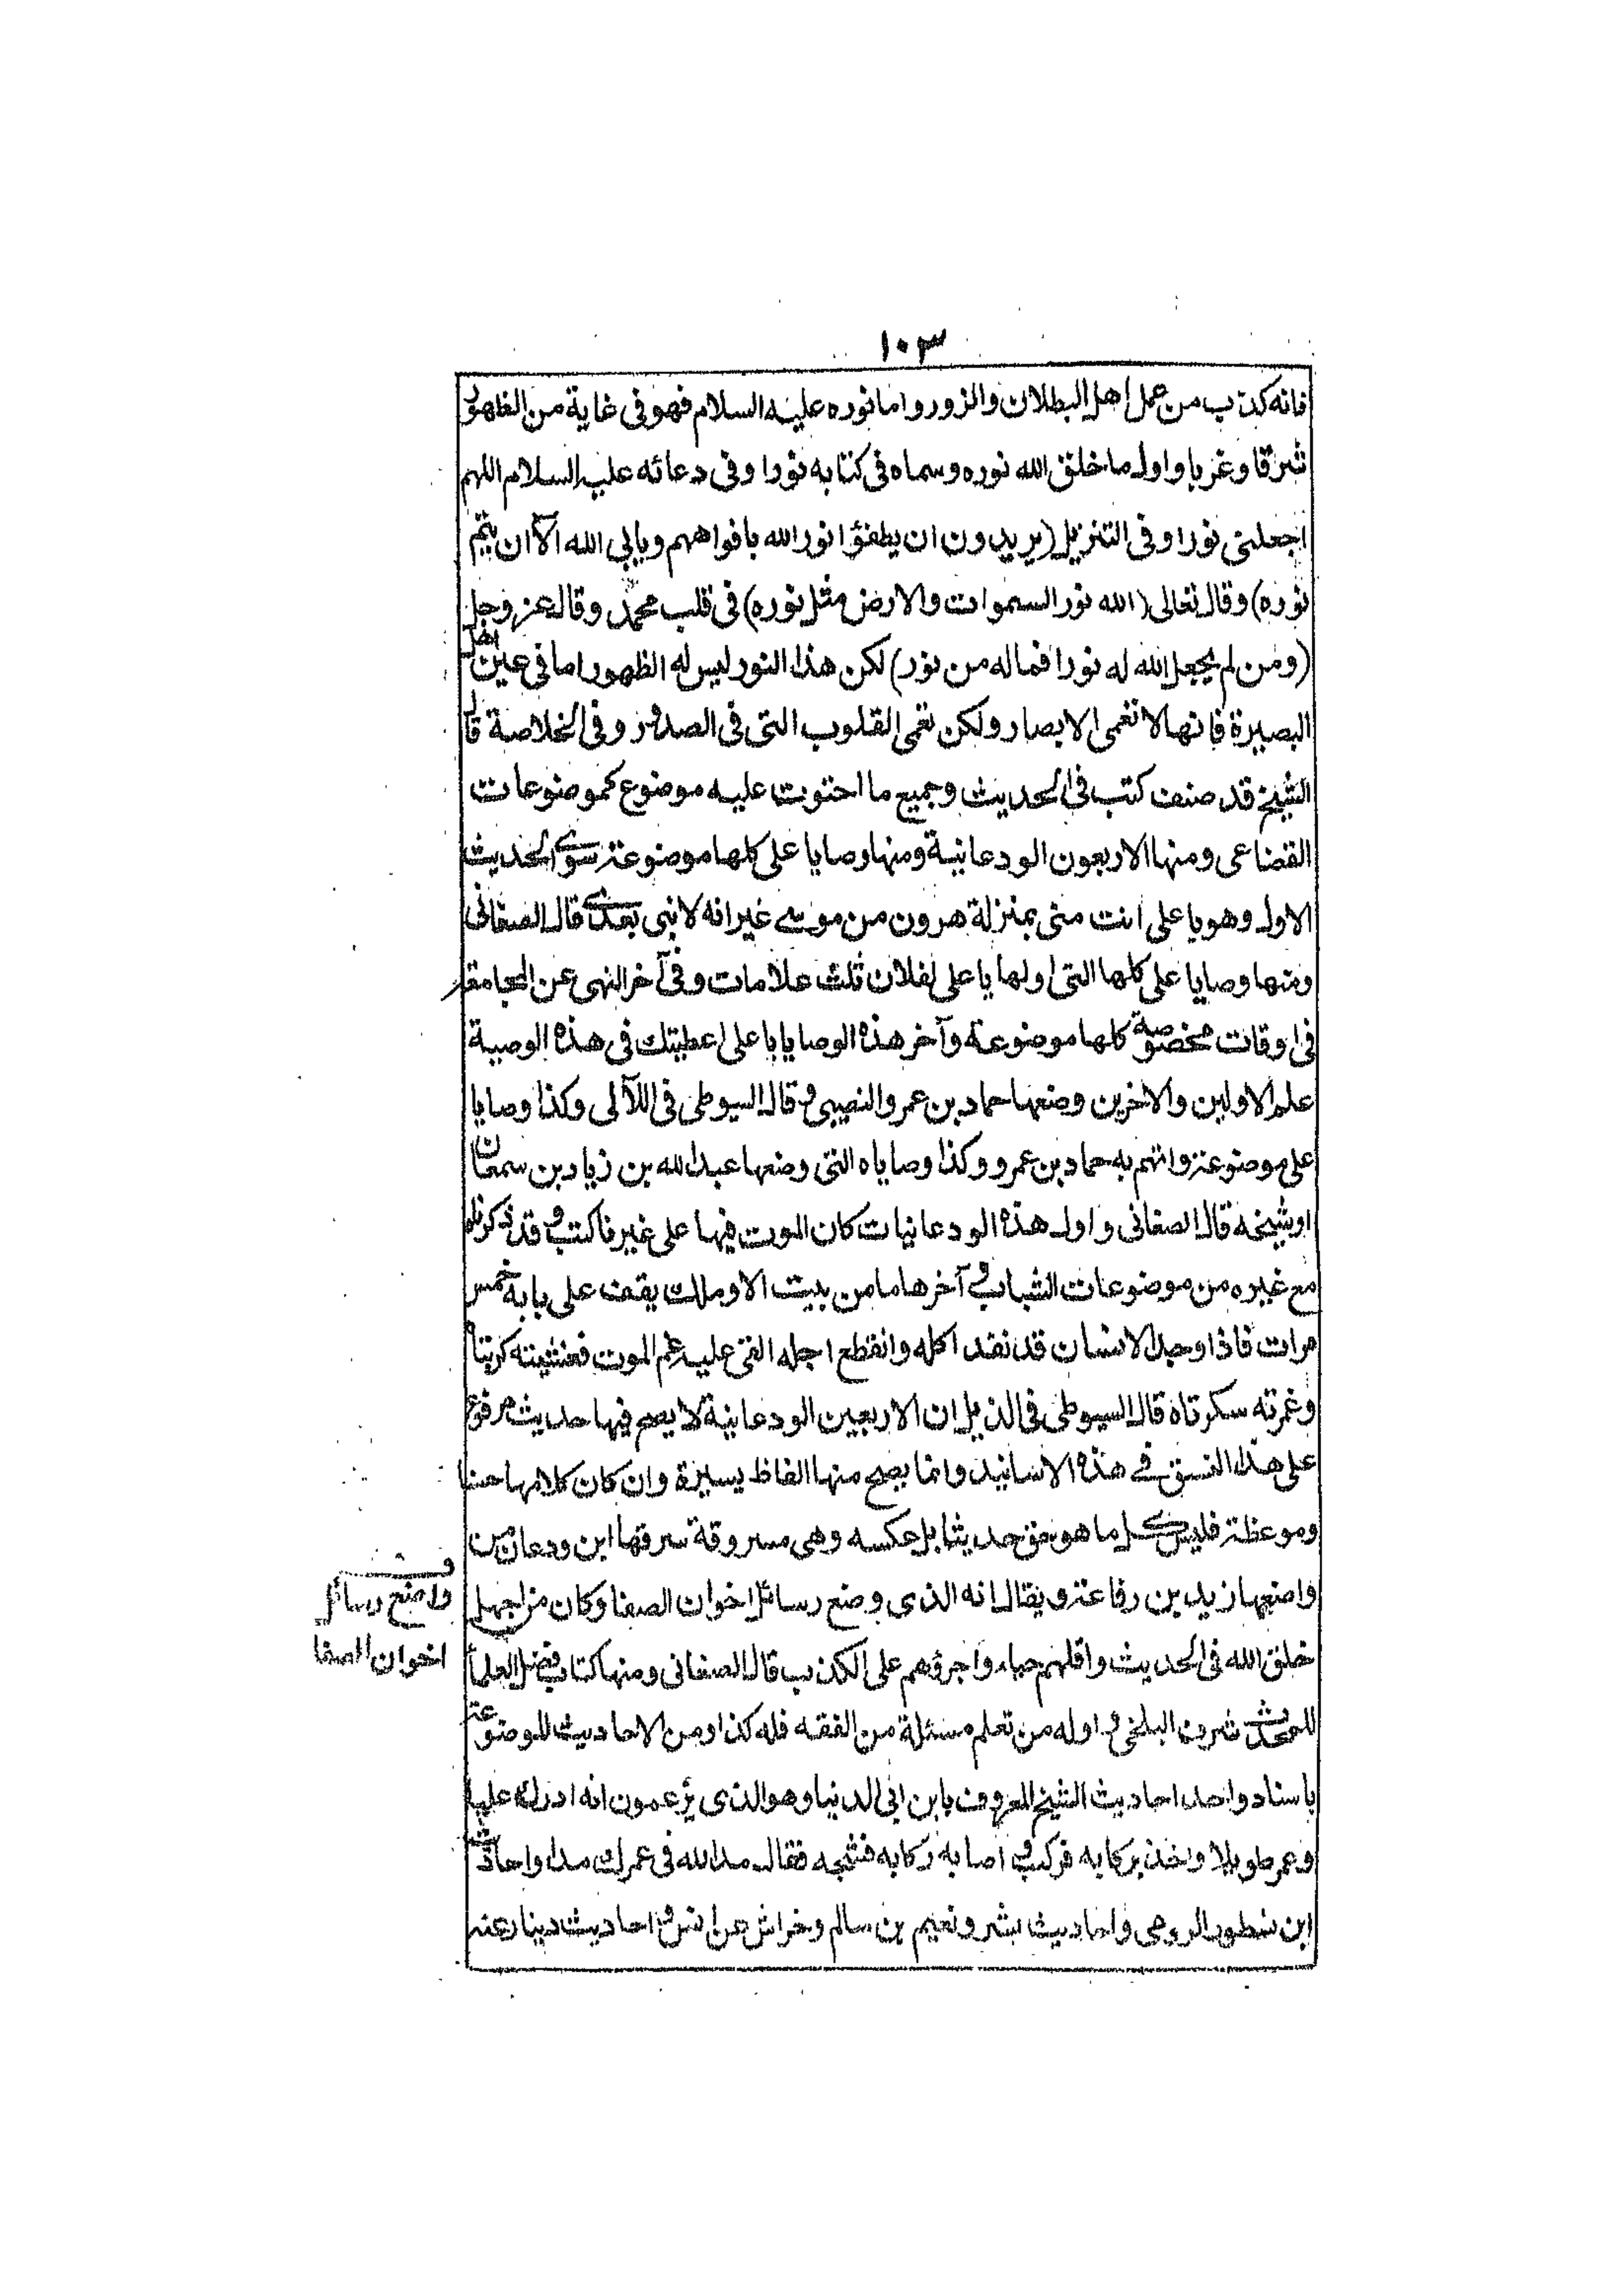 ١٠٣
فانه كذب من عمل اهل البطلان والزور واما نوره عليه السلام فهو فى غاية من الظهور
شرقا وغربا واول ما خلق الله نوره وسماه فى كتابه نورا وفى دعائه عليه السلام اللهم
اجعلنى نورا وفى التنزيل (يريدون ان يطفؤا نور الله بافواههم ويابى الله الا ان يتم
نوره) وقال تعالى (الله نور السموات والارض مثل نوره) فى قلب محمد وقال عز وجل
(ومن لم يجعل الله له نورا فماله من نور) لكن هذا النور ليس له الظهور اما فى عين اهل
البصيرة فانها لا تعمى الابصار ولكن تعمى القلوب التى فى الصدور وفى الخلاصة قال
الشيخ قد صنف كتب فى الحديث وجميع ما احتوت عليه موضوع كموضوعات
القضاعى ومنها الاربعون الودعانية ومنها وصايا على كلها موضوعة سوى الحديث
الاول وهو يا على انت منى بمنزلة هرون من موسى غير انه لا نبى بعدى قال الصغانى
ومنها وصايا على كلها التى اولها يا على لفلان ثلث علامات وفى آخر النهى عن المجامعة
فى اوقات مخصوصة كلها موضوعة وآخر هذه الوصايا يا على اعطيتك فى هذه الوصية
علم الاولين والاخرين وضعها حماد بن عمرو النصيبى وقال السيوطى فى اللآلى وكذا وصايا
على موضوعة واتهم به حماد بن عمرو وكذا وصاياه التى وضعها عبد الله بن زياد بن سمعان
او شيخه قال الصغانى واول هذه الودعانيات كان الموت فيها على غيرنا كتب وقد ذكرناه
مع غيره من موضوعات الشهاب وآخرها ما من بيت الا وملك يقف على بابه خمس
مرات فاذا وجد الانسان قد نفد اكله وانقطع اجله القى عليه غم الموت فغشيته كرباته
وغمرته سكرتاه قال السيوطى فى الذيل ان الاربعين الودعانية لا يصح فيها حديث مرفوع
على هذا النسق فى هذه الاسانيد وانما يصح منها الفاظ يسيرة وان كان كلامها حسنا
وموعظة فليس كل ما هو حق حديثا بل عكسه وهى مسروقة سرقها ابن ودعان من
واضعها زيد بن رفاعة ويقال انه الذى وضع رسائل اخوان الصفا وكان من اجهل
خلق الله فى الحديث واقلهم حياء واجرؤهم على الكذب قال الصغانى ومنها كتاب فضل العلماء
للمحدث شرف البلخى و اوله من تعلم مسئلة من الفقه فله كذا ومن الاحاديث الموضوعة
باسناد واحد احاديث الشيخ المعروف بابن ابى الدنيا وهو الذى يزعمون انه ادرك عليا
وعمر طويلا واخذ بركابه فركب و اصابه ركابه فشجه فقال مد الله فى عمرك مدا واحاديث
ابن نسطور الرومى واحاديث بشر ونعيم بن سالم وخراش عن انس و احاديث دينار عنه
و
واضع رسائل
اخوان الصفا